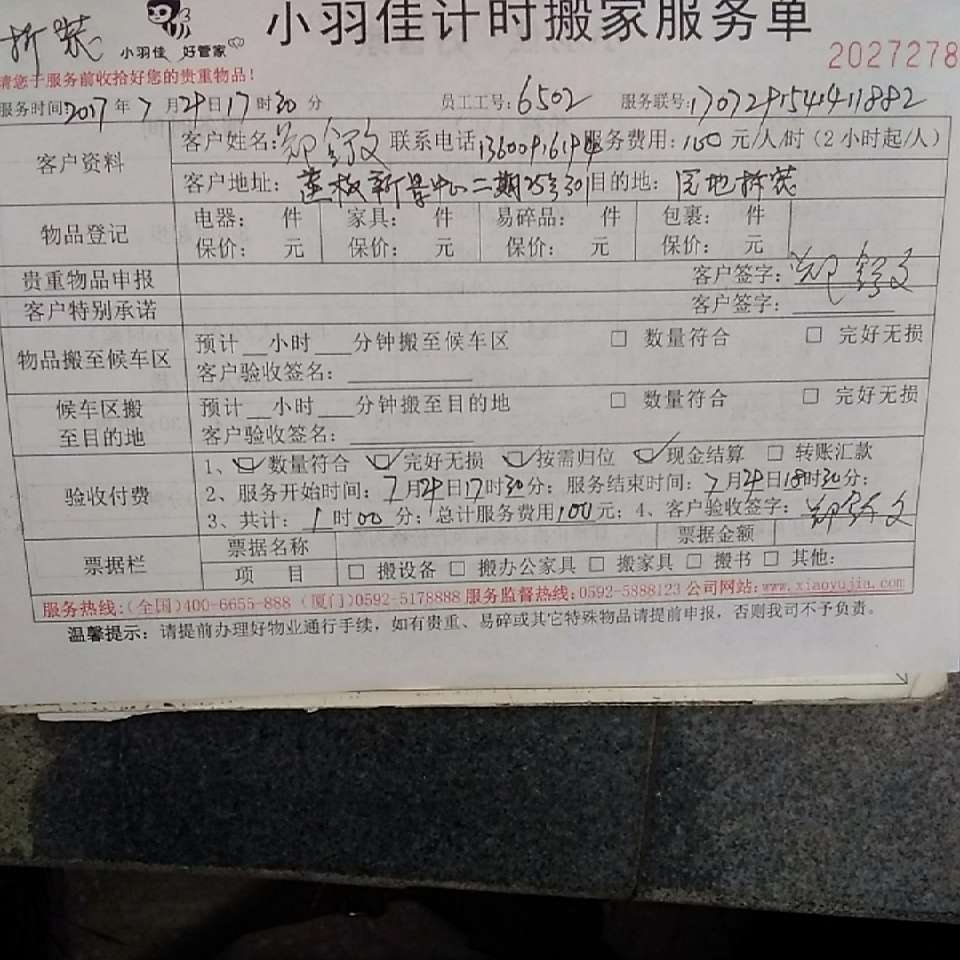 小羽佳计时搬家服务单
拆装
小羽佳 好管家
2027278
请您于服务前收拾好您的贵重物品!
服务时间:2017年7月29日17时30分 员工工号:6502 服务联号:1707291541411882
客户资料 客户姓名:郑 联系电话 服务费用:100元/人/时(2小时起/人)
客户地址:莲板新景中心二期25号301 目的地:原地拆装
物品登记 电器: 件 家具: 件 易碎品: 件 包裹: 件
保价: 元 保价: 元 保价: 元 保价: 元
贵重物品申报 客户签字:郑
客户特别承诺 客户签字:
物品搬至候车区 预计__小时___分钟搬至候车区 □ 数量符合 □ 完好无损
客户验收签名:
候车区搬至目的地 预计__小时___分钟搬至目的地 □ 数量符合 □ 完好无损
客户验收签名:
验收付费 1、☑数量符合 ☑完好无损 ☑按需归位 ☑现金结算 □ 转账汇款
2、服务开始时间:7月29日17时30分;服务结束时间:7月29日18时30分;
3、共计:1时00分;总计服务费用100元;4、客户验收签字:郑
票据栏 票据名称 票据金额
项 目 □ 搬设备 □ 搬办公家具 □ 搬家具 □ 搬书 □ 其他:
服务热线:(全国)400-6655-888 (厦门)0592-5178888 服务监督热线:0592-5888123 公司网站:www.xiaoyujia.com
温馨提示:请提前办理好物业通行手续,如有贵重、易碎或其它特殊物品请提前申报,否则我司不予负责。